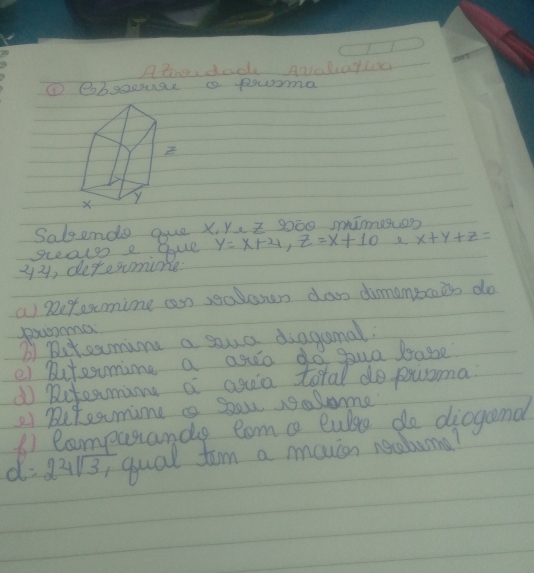 Atividade Avaliativa
① Observe o prisma
z
x
y
Sabendo que x, y e z são números
reais e que y = x+4, z = x+10 e x+y+z =
44, determine:
a) Determine os valores das dimensões do
prisma
b) Determine a sua diagonal:
c) Determine a aréa da sua base:
d) Determine a aréa total do prisma:
e) Determine o seu volome
f) Comparando com o cubo de diagonal
d = 24√3, qual tem a maior volume?